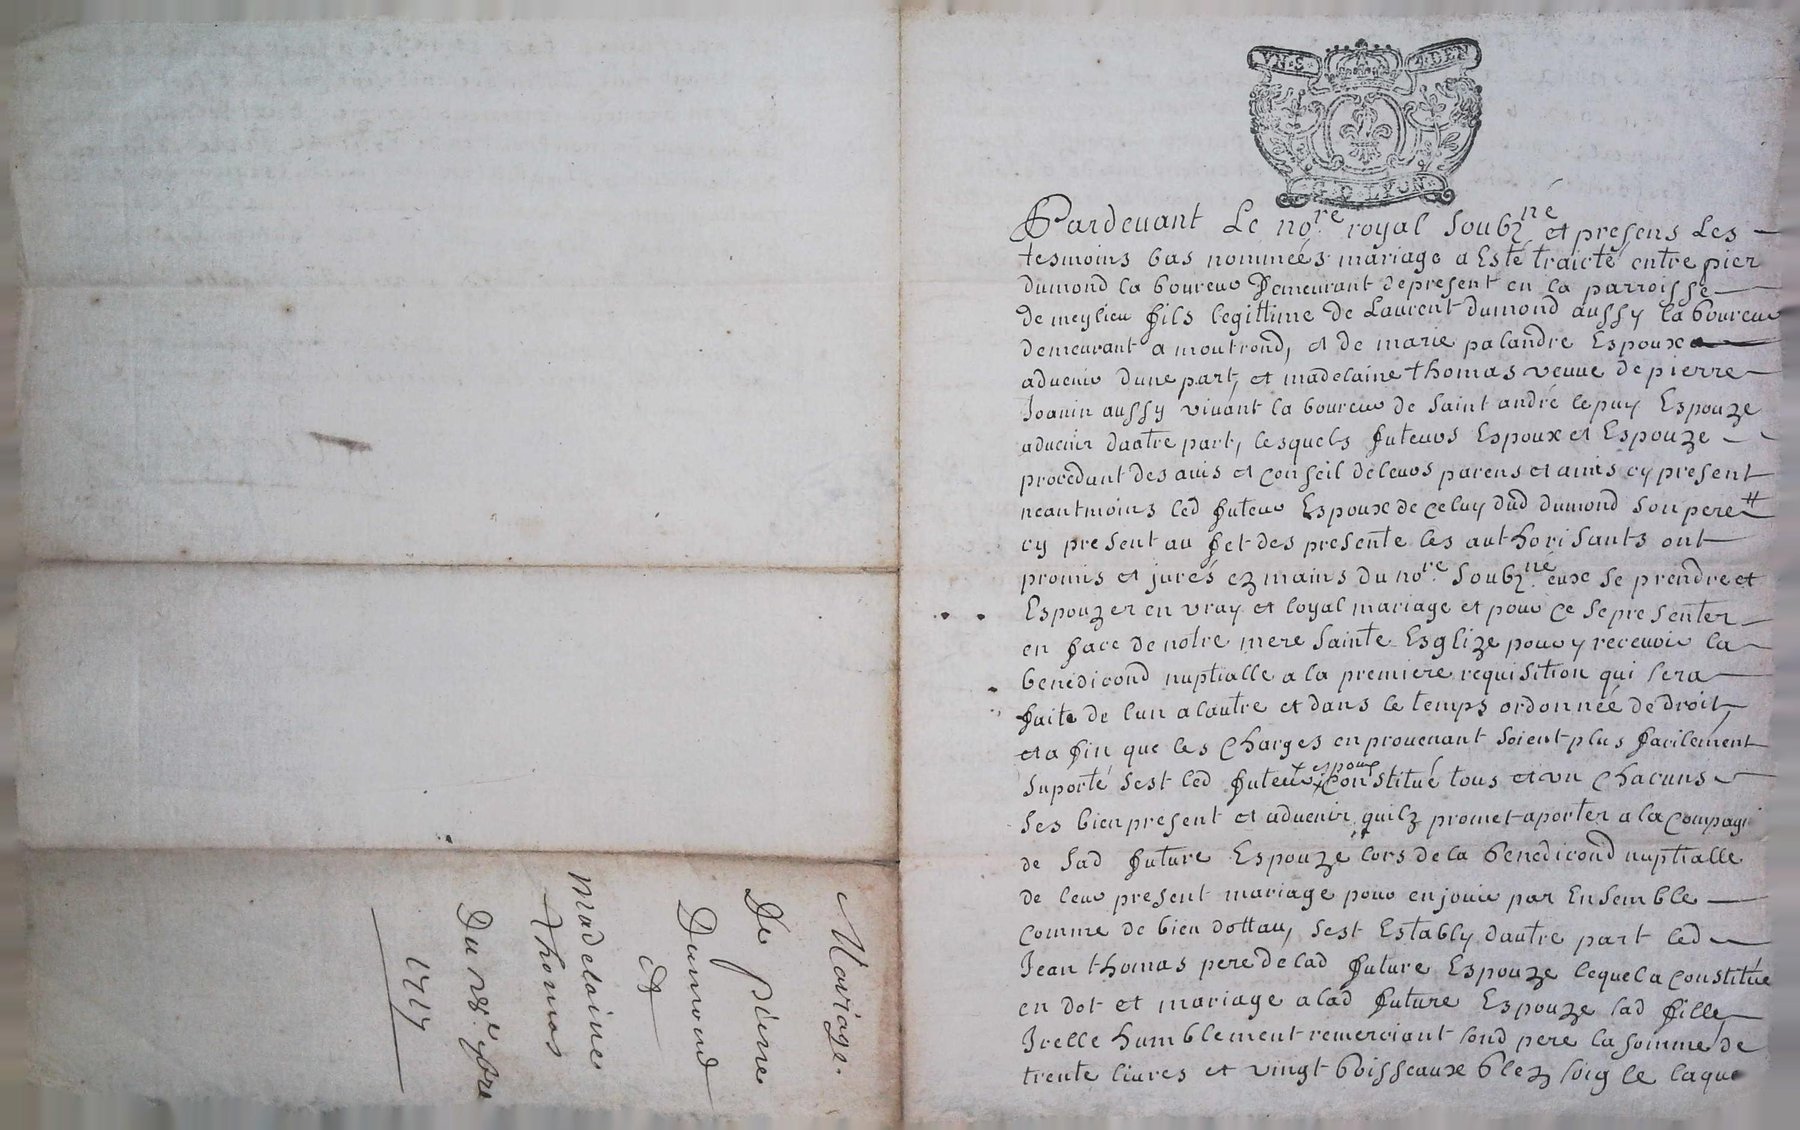 VN·S· 4·DEN
G·D·LYON·
Pardeuant Le no.re royal Soubz.né et presens Les
tesmoins bas nommées mariage a Esté traicté entre pier
dumond laboureur Demeurant depresent en la parroisse
de meylieu fils legittime de Laurent dumond aussy laboureur
demeurant a montrond, et de marie palandre Espoux
aduenir dune part, et madelaine thomas veuue de pierre
Joanin aussy viuant laboureur de Saint andré lepuy Espouze
aduenir dautre part, lesquels futeurs Espoux et Espouze
procedant des auis et conseil deleurs parens et amis cy present
neantmoins led futeur Espoux de celuy dud dumond son pere #
cy present au fet des presente les authorisants ont
promis et jurés ez mains du no.re Soubz.né eux se prendre et
Espouzer en vray et loyal mariage et pour ce sepresenter
en face de notre mere Sainte Esglize pour y receuoir la
benedicond nuptialle a la premiere requisition qui sera
faite de lun alautre et dans le temps ordonnée de droit,
et a fin que les charges enprouenant soient plus facilement
Suporté Sest led futeur espoux constitué tous et vn chacuns
Ses bien present et aduenir quilz promet aporter a la compagi
de Sad future Espouze lors de la benedicond nuptialle
de leur present mariage pour en jouir par Ensemble
comme de bien dottau, Sest Estably dautre part led
Jean thomas pere de lad future Espouze lequel a constitué
en dot et mariage a lad future Espouze sad fille
Icelle humblement remerciant sond pere la somme de
trente liures et vingt boisseaux blez soigle laque
Mariage.
De pierre
Dumond
&
Madelaine
Thomas
Du 28.e 7bre
1717